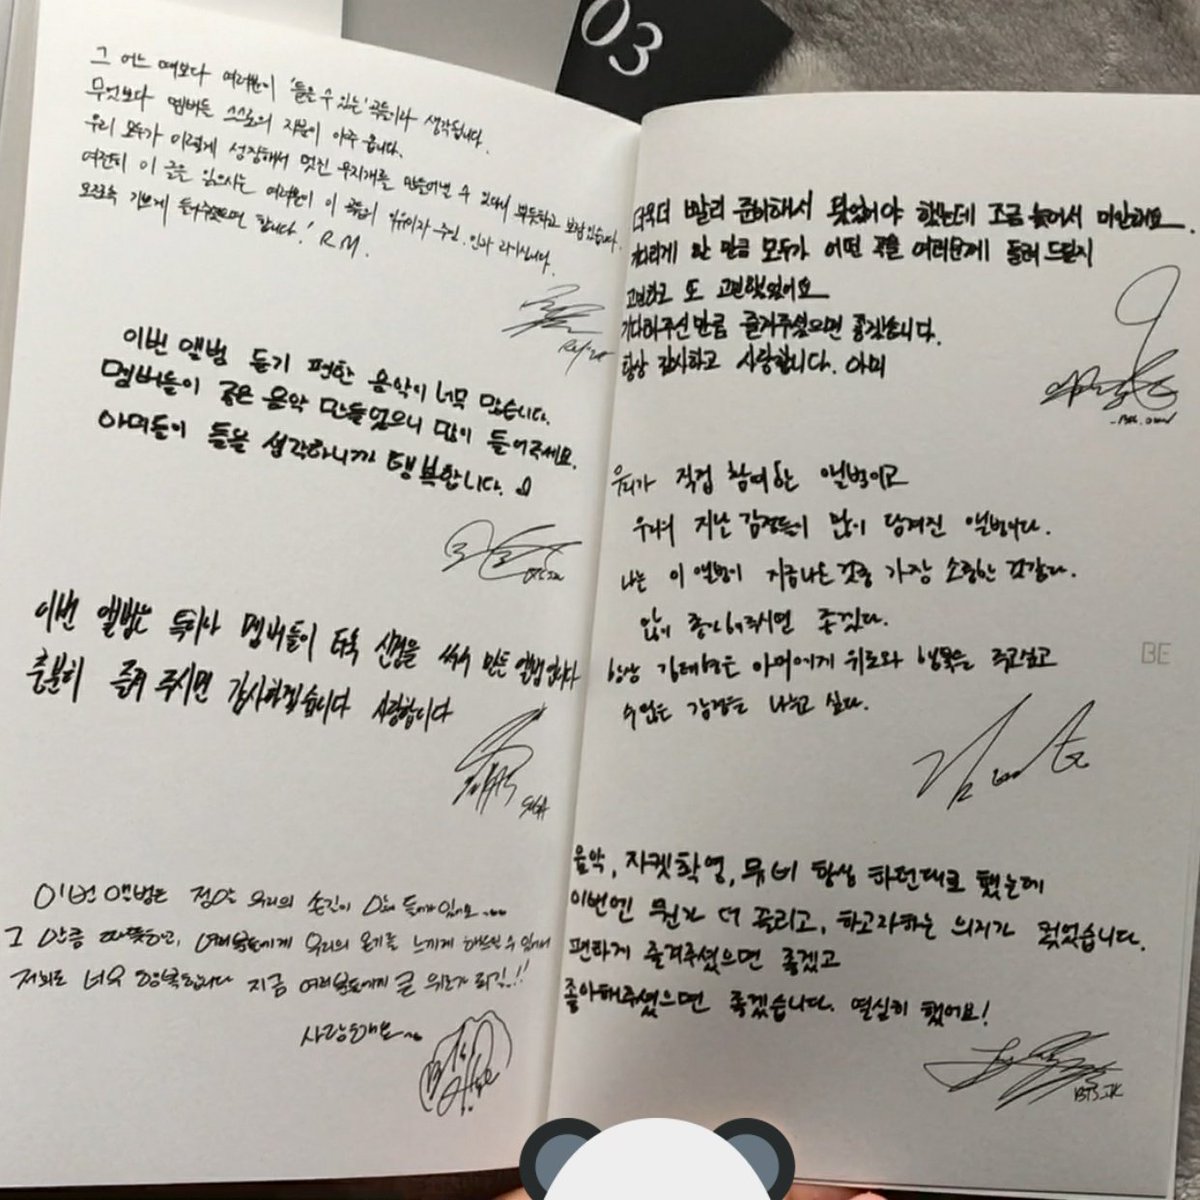 03
그 어느 때보다 여러분이 '들을 수 있는' 곡들이라 생각됩니다.
무엇보다 멤버들 스스로의 지문이 아주 많습니다.
우리 모두가 이렇게 성장해서 멋진 무지개를 만들어낼 수 있다니 뿌듯하고 보람있습니다.
여전히 이 글을 읽으시는 여러분이 이 앨범의 이유이자 주인, 인과 라이십니다.
모쪼록 기쁘게 들어주셨으면 합니다! R.M.
이번 앨범 듣기 편한 음악이 너무 많습니다.
멤버들이 좋은 음악 만들었으니 많이 들어주세요.
아미들이 들을 생각하니까 행복합니다.
이번 앨범은 특히나 멤버들이 더욱 신경을 써서 만든 앨범입니다
충분히 즐겨 주시면 감사하겠습니다 사랑합니다
SUGA
이번 앨범은 정말 우리의 손길이 많이 들어가 있어요
그 만큼 따뜻하고, 여러분들에게 우리의 온기를 느끼게 해드릴 수 있어서
저희도 너무 행복합니다 지금 여러분들에게 큰 위로가 되길..!!
사랑해요~~
더욱더 빨리 준비해서 왔었어야 했는데 조금 늦어서 미안해요.
기다리게 한 만큼 모두가 어떤 곡을 여러분께 들려 드릴지
고민하고 또 고민했었어요
기다려주신만큼 즐겨주셨으면 좋겠습니다.
항상 감사하고 사랑합니다. 아미
우리가 직접 참여한 앨범이고
우리의 지난 감정들이 많이 담겨진 앨범이다.
나는 이 앨범이 지금나온것중 가장 소중한 것같다.
많이 좋아해주시면 좋겠다.
항상 김태형은 아미에게 위로와 행복을 주고싶고
수많은 감정을 나누고 싶다.
BE
음악, 자켓촬영, 뮤비 항상 하던대로 했는데
이번엔 뭔가 더 끌리고, 하고자하는 의지가 컸었습니다.
편하게 즐겨주셨으면 좋겠고
좋아해주셨으면 좋겠습니다. 열심히 했어요!
BTS.JK